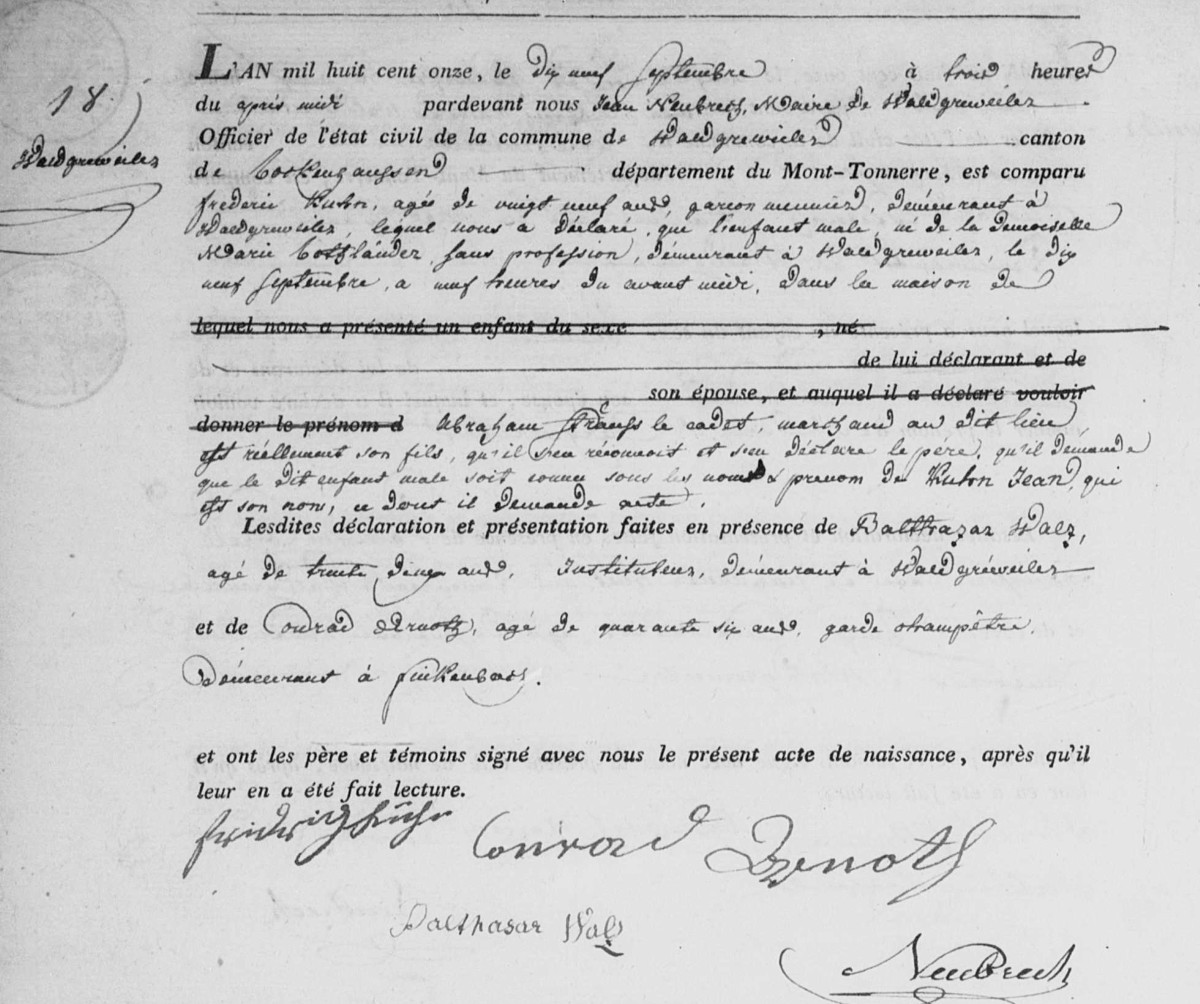 L'AN mil huit cent onze, le dix neuf Septembre à trois heures
18
du après midi pardevant nous Jean Neubrech, Maire de Waldgreweiler
Officier de l'état civil de la commune de Waldgreweiler canton
Waldgreweiler
de département du Mont-Tonnerre, est comparu
frederic Kuhn, agée de vingt neuf ans, garcon meunier, démeurant à
Waldgreweiler, lequel nous a déclaré, que l'enfant male, né de la demoiselle
Marie sans profession, démeurant à Waldgreweiler, le dix
neuf Septembre, a neuf heures du avant midi, dans la maison de
lequel nous a présenté un enfant du sexe , né
de lui déclarant et de
son épouse, et auquel il a déclaré vouloir
donner le prénom d Abraham le cadet, marchand au dit lieu
est réellement son fils, qu'il s'en réconnoit et s'en déclare le père, qu'il démande
que le dit enfant male soit connu sous les noms & prenom de Kuhn Jean, qui
est son nom, ce dont il demande acte.
Lesdites déclaration et présentation faites en présence de Balthazar Walz,
agé de trente deux ans, Instituteur, démeurant à Waldgréweiler
et de Conrad Arnoth, agé de quarante six ans, garde champêtre,
Démeurant à finkenbach.
et ont les père et témoins signé avec nous le présent acte de naissance, après qu'il
leur en a été fait lecture.
Fridrich Kuhn Conrad Arnoth
Balthasar Walz
Neubrech